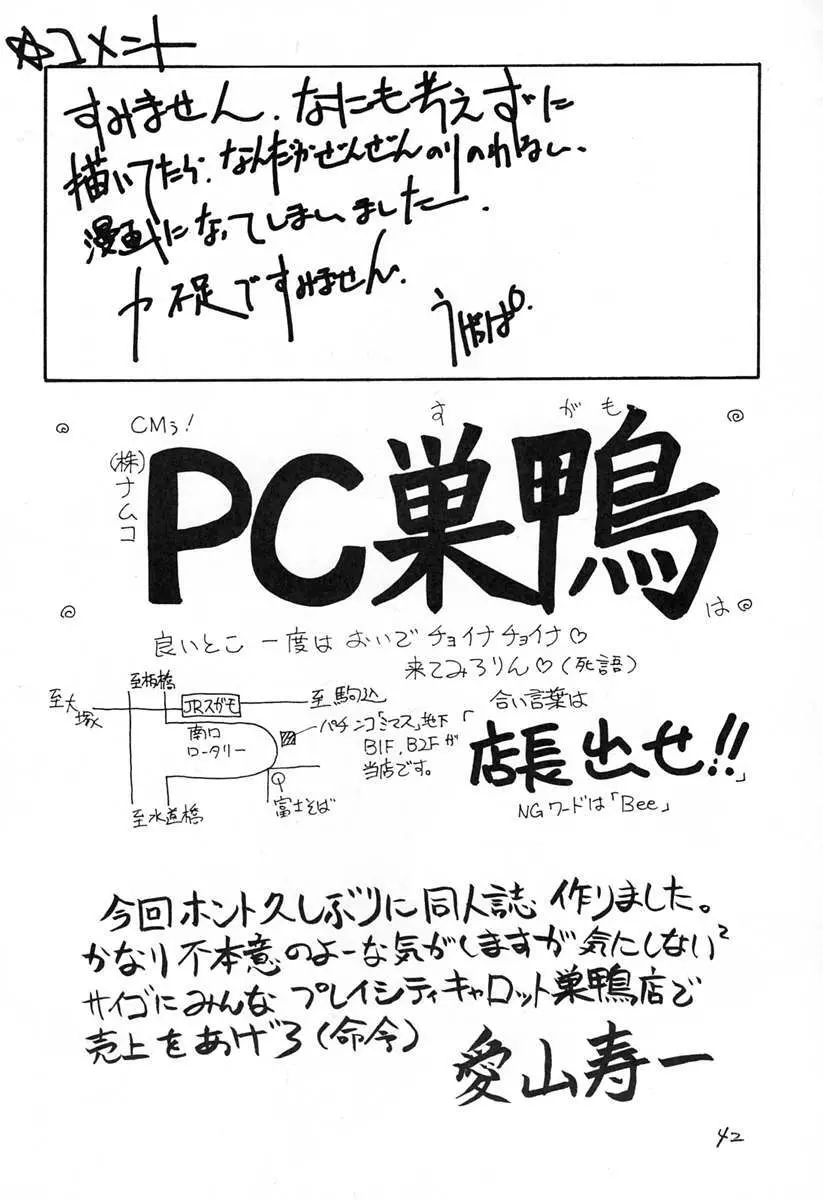 ☆コメント
すみません、なにも考えずに
描いてたら、なんだかぜんぜんのりのわるい、
漫画になってしまいました。
力不足ですみません。
CMぅ!
(株)ナムコ
すがも
PC巣鴨
は
良いとこ 一度は おいで チョイナチョイナ♡
来てみろりん♡(死語)
至大塚
至板橋
JRスガモ
至駒込
南口
ロータリー
パチンコ「ミマス」地下
B1F,B2Fが
当店です。
富士そば
至水道橋
合い言葉は
「店長出せ!!」
NGワードは「Bee」
今回ホント久しぶりに同人誌 作りました。
かなり不本意のよーな気がしますが気にしない²
サイゴにみんな プレイシティキャロット巣鴨店で
売上をあげろ(命令)
愛山寿一
42